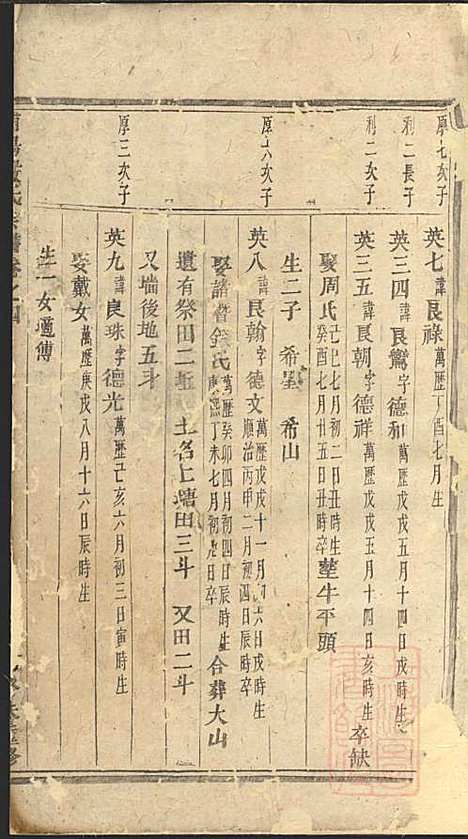 厚七次子
英七諱良祿萬歷丁酉七月生
利二長子
英三四諱良鸞字德和萬歷戊戌五月十四日戌時生
利二次子
英三五諱良朝字德祥萬歷戊戌五月十四日亥時生 卒缺
娶周氏己巳七月初二日丑時生癸酉七月廿五日丑時卒塟牛平頭
生二子 希聖 希山
厚六次子
英八諱良翰字德文萬歷戊戌十一月初六日戌時生順治丙申二月初四日辰時卒
娶諸曾錢氏萬歷癸卯四月初四日辰時生康熙丁未七月初九日卒合葬大山
遺有祭田二坵 土名上塘田三斗 又田二斗
又塘後地五才
厚三次子
英九諱良珠字德光萬歷己亥六月初三日寅時生
娶戴女萬歷庚戌八月十六日辰時生
生一女適傅
氏宗譜卷之四